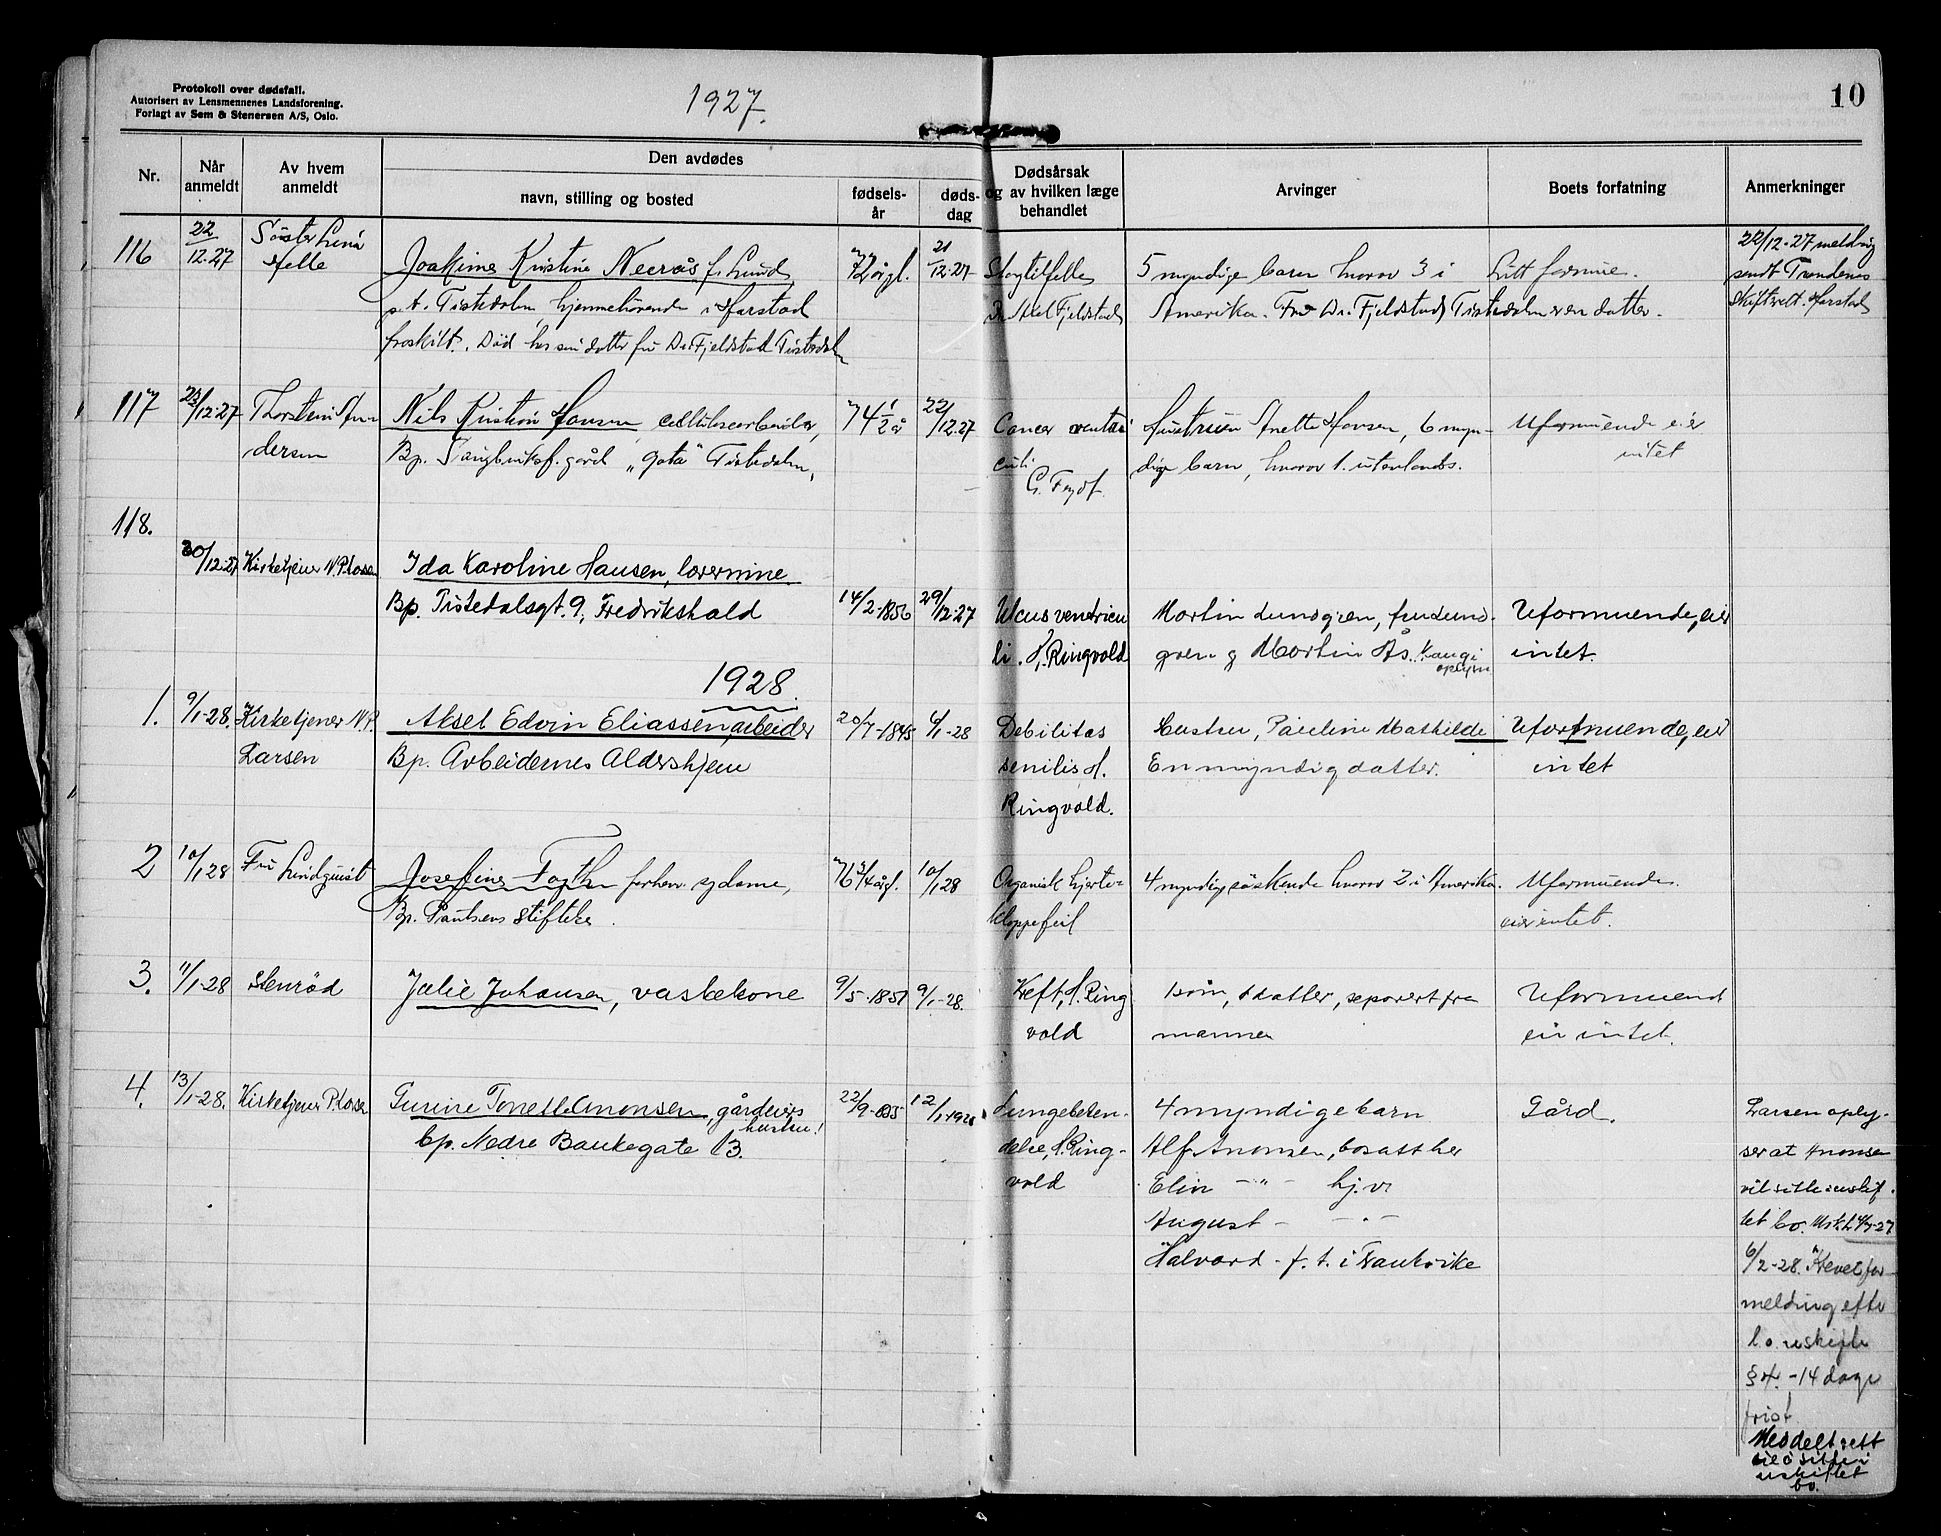 Protokoll over dødsfall.
Autorisert av Lensmennenes Landsforening.
Forlagt av Sem & Stenersen A/S, Oslo.
1927.
10
Nr.
Når anmeldt
Av hvem anmeldt
Den avdødes
navn, stilling og bosted
fødsels-år
døds-dag
Dødsårsak og av hvilken læge behandlet
Arvinger
Boets forfatning
Anmerkninger
116
22/12-27
Søster Lina
Joakime Kristine Neerås f. Lund
p.t. Tistedalen hjemmehörende i Harstad
fraskilt. Død hos sin datter fru Dr. Fjeldstad Tistedalen
72 årgl.
21/12-27
Slagtilfelle
Dr. Axel Fjeldstad
5 myndige barn hvorav 3 i
Amerika. Fru Dr. Fjeldstad, Tistedalen er en datter.
Litt formue.
22/12-27 melding
sendt Trondenes
skifterett. Harstad
117
23/12-27
Thorstein An-
dersen
Nils Kristian Hansen, cellulosearbeider,
Bp. gård "Gata" Tistedalen,
74 1/2 år
22/12.27
Cancer ventri
culi
Hustruen Anette Hansen, 6 myn-
dige barn, hvorav 1. utenlands.
Uformuende eier
intet
118.
30/12-27
Kirketjener N.P. Larsen
Ida Karoline Hansen, lærerinne
Bp. Tistedalsgt. 9, Fredrikshald
14/2-1856
29/12-27
Ulcus ventricu
li. H. Ringvold
Martin Lundgren, fru Lund-
gren og Martin Ås.
Uformuende, eier
intet.
1928.
1.
9/1-28.
Kirketjener N.P.
Larsen
Aksel Edvin Eliassen, arbeider
Bp. Arbeidernes Aldershjem
20/7-1845
6/1-28
Debilitas
senilis H.
Ringvold.
Hustru, Pauline Mathilde
En myndig datter.
Uformuende, eier
intet
2
10/1 28
Fru Lindquist
Josefine forhenv. sydame,
Bp. Paulsens Stiftelse
76 3/4 årgl.
10/1 28
Organisk hjerte-
klappefeil
4 myndige søskende hvorav 2 i Amerika.
Uformuende.
eier intet.
3.
11/1-28
Stenrød
Julie Johansen, vaskekone
9/5-1851
9/1-28.
Kreft, H. Ring
vold
1 sön, 1 datter, separert fra
mannen
Uformuend
eier intet.
4.
13/1-28.
Kirketjener P. Larsen
Gurine Tonette Anonsen, gårdeiers
hustru!
bp. Nedre Bankegate 13.
22/9-1855
12/1-1928
Lungebeten-
delse, H. Ring-
vold
4 myndige barn
Alf Anonsen, bosatt her
Elin - " - hj.v.
August - - " -
Halvard - f. t. i Frankrike
Gård.
Larsen oply-
ser at Anonsen
vil sitte i uskif-
tet bo.
6/2-28. Krevet for
melding efter
l.o. uskifte
§ 4. - 14 dage
frist
Meddelt rett
til å sitte i
uskiftet
bo.